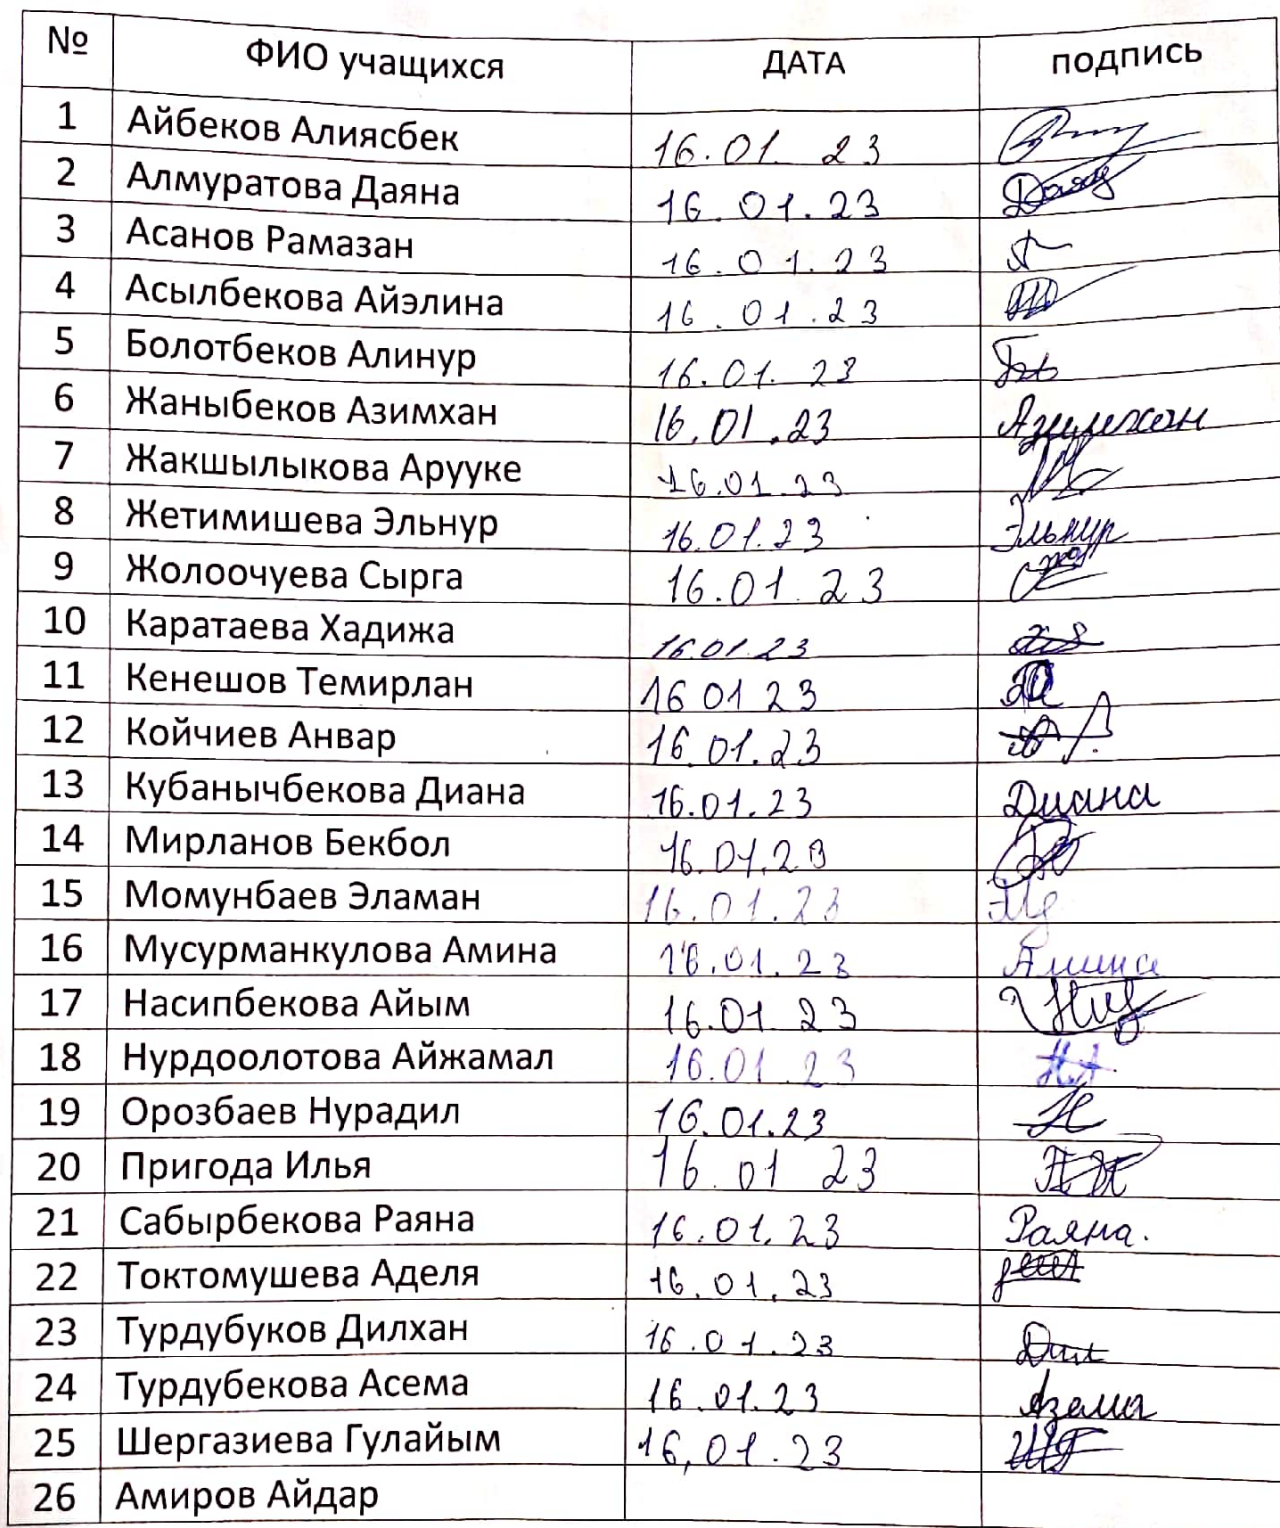 № ФИО учащихся ДАТА подпись
1 Айбеков Алиясбек 16.01. 23
2 Алмуратова Даяна 16.01.23 Даяна
3 Асанов Рамазан 16.01.23
4 Асылбекова Айэлина 16.01.23
5 Болотбеков Алинур 16.01.23
6 Жаныбеков Азимхан 16.01.23 Азимхан
7 Жакшылыкова Арууке 16.01.23
8 Жетимишева Эльнур 16.01.23 Эльнур
9 Жолоочуева Сырга 16.01.23
10 Каратаева Хадижа 16.01.23
11 Кенешов Темирлан 16 01 23
12 Койчиев Анвар 16.01.23
13 Кубанычбекова Диана 16.01.23 Диана
14 Мирланов Бекбол 16.01.23
15 Момунбаев Эламан 16.01.23
16 Мусурманкулова Амина 16.01.23 Амина
17 Насипбекова Айым 16.01 23
18 Нурдоолотова Айжамал 16.01.23 Н.А.
19 Орозбаев Нурадил 16.01.23
20 Пригода Илья 16.01 23
21 Сабырбекова Раяна 16.01.23 Раяна.
22 Токтомушева Аделя 16.01.23
23 Турдубуков Дилхан 16.01.23 Дил
24 Турдубекова Асема 16.01.23 Азема
25 Шергазиева Гулайым 16,01.23
26 Амиров Айдар